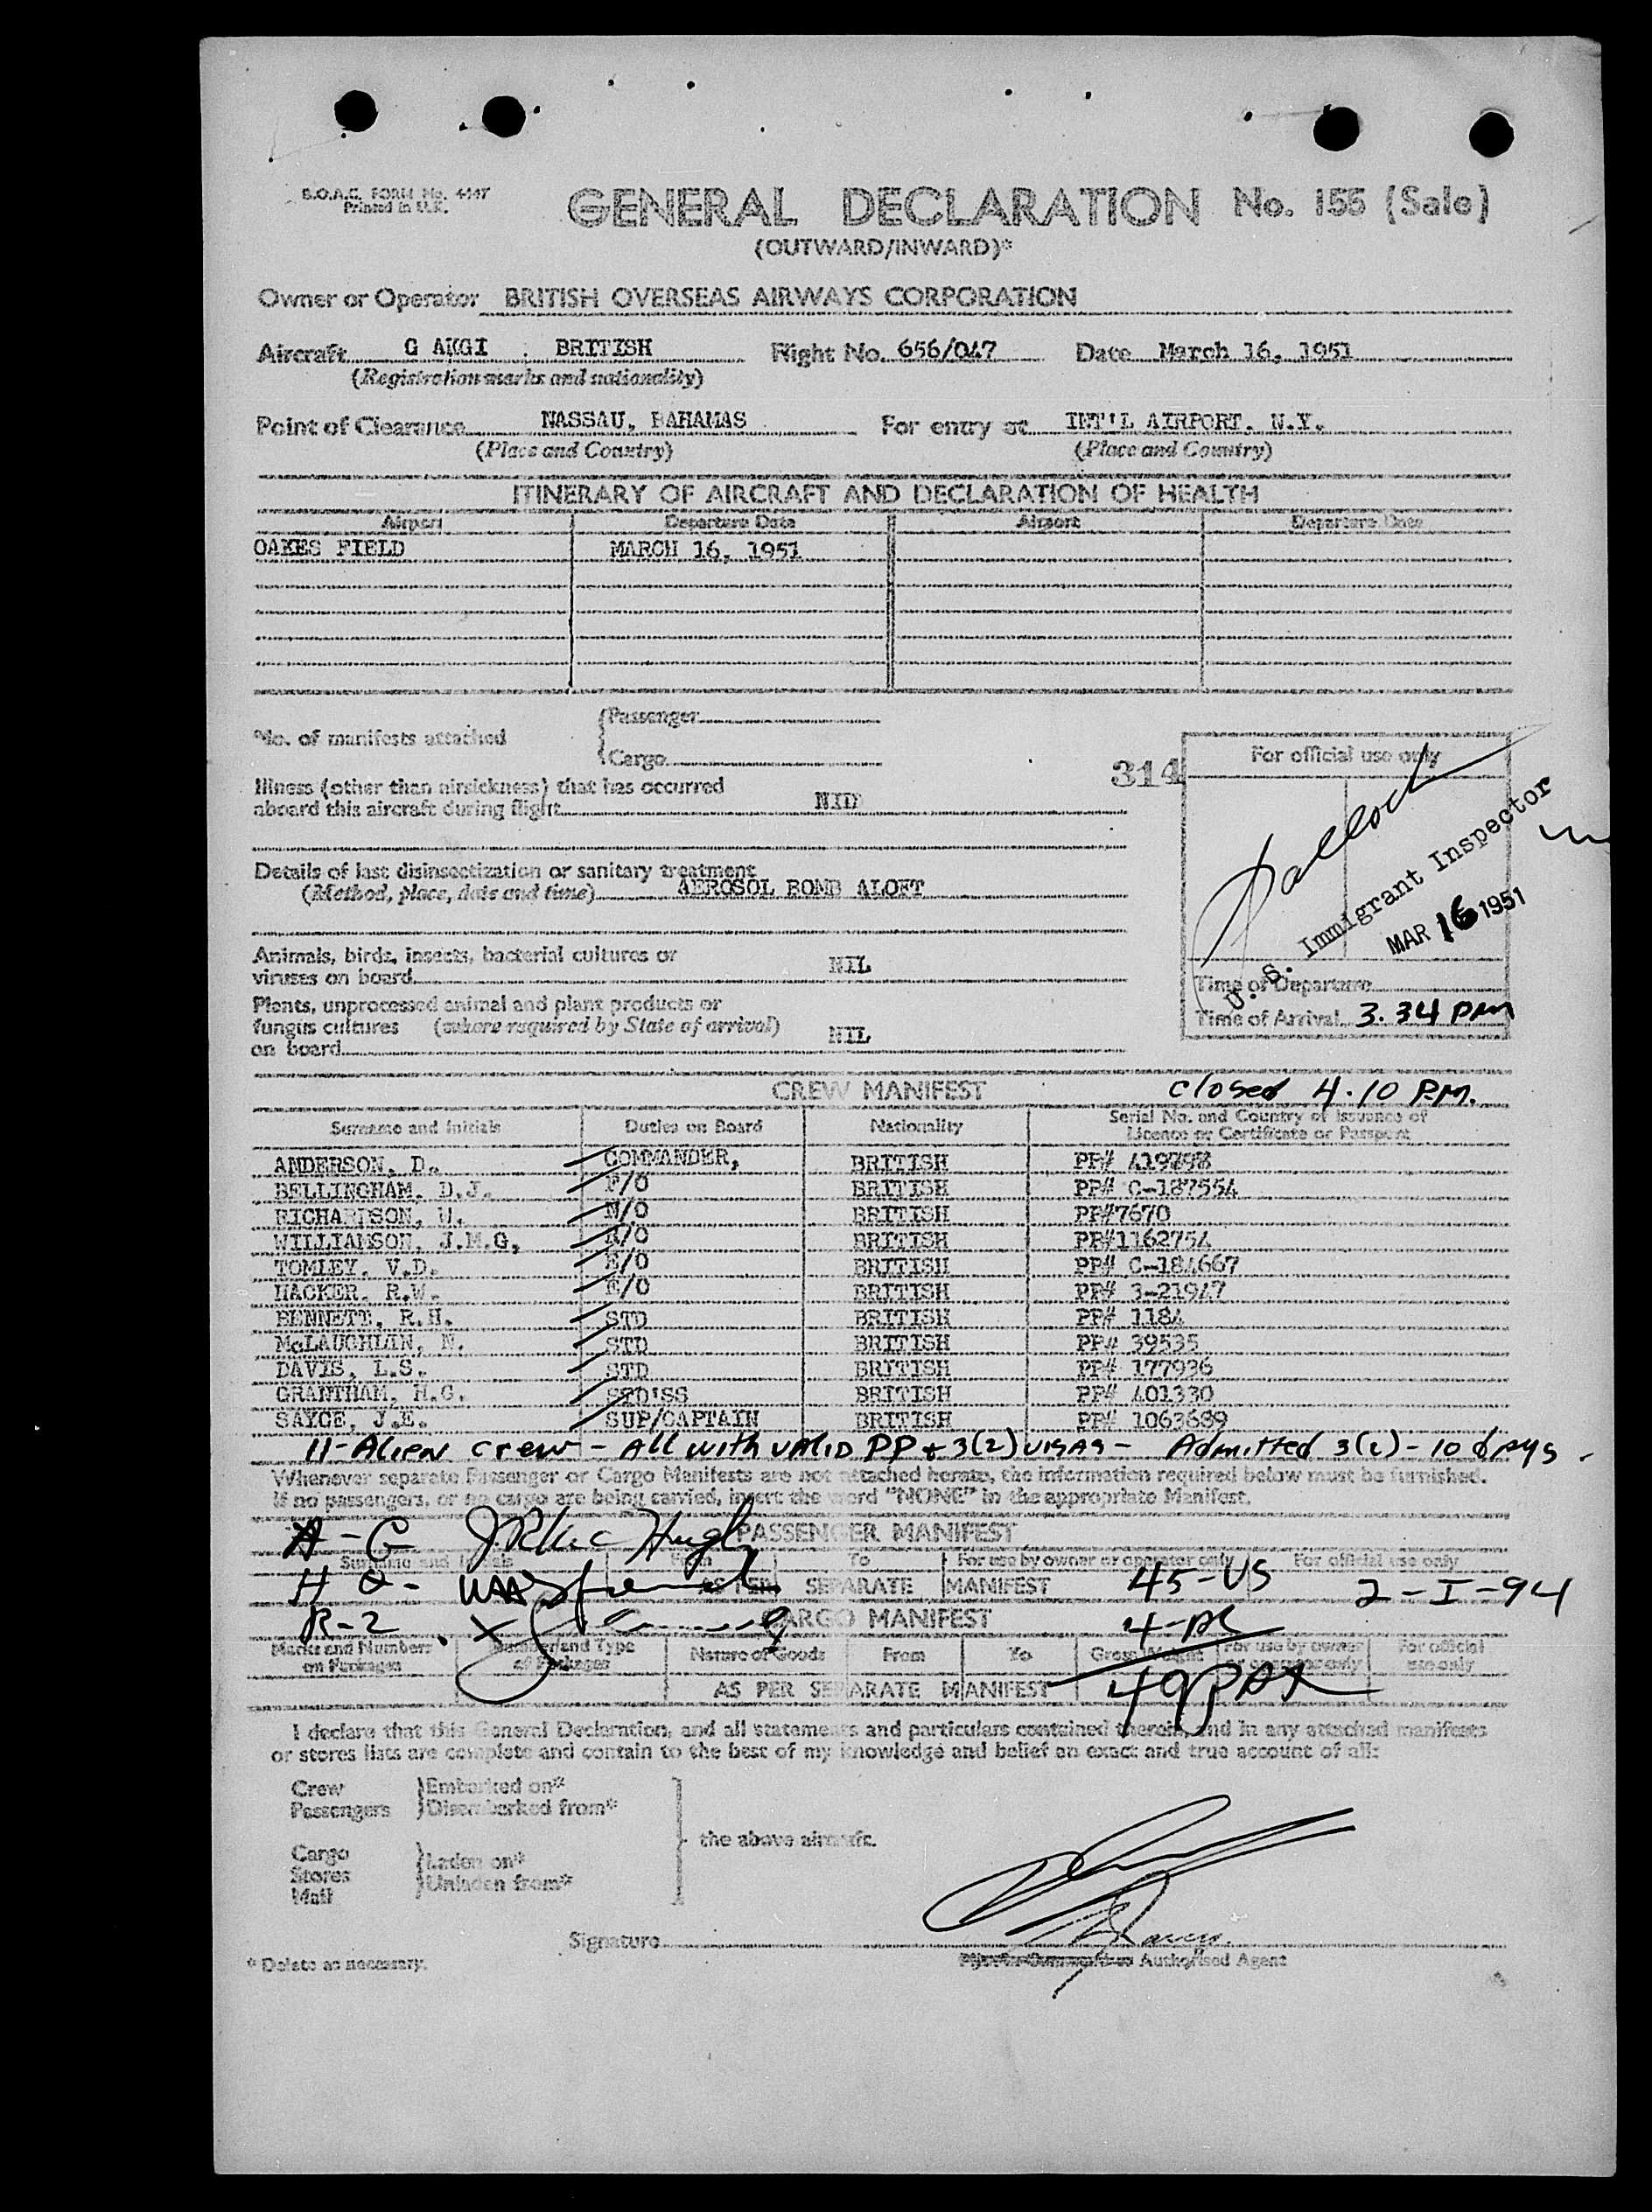 B.O.A.C. FORM No. 4447
Printed in U.K.
GENERAL DECLARATION No. 155 (Sale)
(OUTWARD/INWARD)*
Owner or Operator BRITISH OVERSEAS AIRWAYS CORPORATION
Aircraft G AKGI BRITISH Flight No. 656/047 Date March 16, 1951
(Registration marks and nationality)
Point of Clearance NASSAU, BAHAMAS For entry at INT'L AIRPORT. N.Y.
(Place and Country) (Place and Country)
ITINERARY OF AIRCRAFT AND DECLARATION OF HEALTH
Airport Departure Date Airport Departure Date
OAKES FIELD MARCH 16, 1951
*No. of manifests attached
Passenger
Cargo
314
For official use only
Illness (other than airsickness) that has occurred
aboard this aircraft during flight NID
Details of last disinsectization or sanitary treatment
(Method, place, date and time) AEROSOL BOMB ALOFT
U. S. Immigrant Inspector
MAR 16 1951
Animals, birds, insects, bacterial cultures or
viruses on board NIL
Time of Departure
Plants, unprocessed animal and plant products or
fungus cultures (where required by State of arrival) NIL
on board
Time of Arrival 3.34 PM
CREW MANIFEST closed 4.10 P.M.
Surname and Initials Duties on Board Nationality Serial No. and Country of Issuance of
Licence or Certificate or Passport
ANDERSON, D. COMMANDER, BRITISH PP# 419798
BELLINGHAM, D.J. F/O BRITISH PP# C-187554
RICHARDSON, W. N/O BRITISH PP#7670
WILLIAMSON, J.M.G. R/O BRITISH PP#1162754
TOMLEY, V.D. E/O BRITISH PP# C-184667
HACKER, R.W. E/O BRITISH PP# 3-21947
BENNETT, R.H. STD BRITISH PP# 1184
McLAUGHLIN, N. STD BRITISH PP# 39535
DAVIS, L.S. STD BRITISH PP# 177936
GRANTHAM, H.G. STD'SS BRITISH PP# 401330
SAYCE, J.E. SUP/CAPTAIN BRITISH PP# 1063689
11-Alien crew - All with valid PP + 3(2) visas - Admitted 3(2) - 10 days -
Whenever separate Passenger or Cargo Manifests are not attached hereto, the information required below must be furnished.
If no passengers, or no cargo are being carried, insert the word "NONE" in the appropriate Manifest.
A - G
PASSENGER MANIFEST
Surname and Initials From To For use by owner or operator only For official use only
H Q -
AS PER SEPARATE MANIFEST 45-US 2-I-94
R-2
CARGO MANIFEST
Marks and Numbers on Packages Number and Type of Packages Nature of Goods From To Gross Weight For use by owner or operator only For official use only
AS PER SEPARATE MANIFEST
I declare that this General Declaration, and all statements and particulars contained therein, and in any attached manifests
or stores lists are complete and contain to the best of my knowledge and belief an exact and true account of all:
Crew
Passengers
Embarked on*
Disembarked from*
the above aircraft.
Cargo
Stores
Mail
Laden on*
Unladen from*
Signature
Authorised Agent
* Delete as necessary.